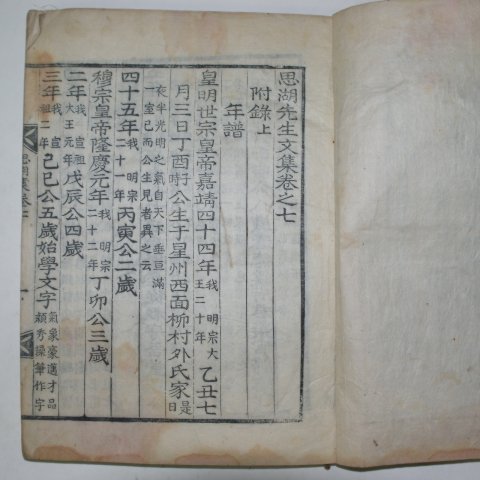 思湖先生文集卷之七
附錄上
年譜
皇明世宗皇帝嘉靖四十四年我明宗大王二十年乙丑七
月三日丁酉時公生于星州西面柳村外氏家是日
夜半光明之氣自天下垂亘滿一室已而公生見者異之云
四十五年我明宗二十一年丙寅公二歲
穆宗皇帝隆慶元年我明宗二十二年丁卯公三歲
二年我宣祖大王元年戊辰公四歲
三年我宣祖二年己巳公五歲始學文字氣象豪邁才品頴秀操筆作字
思湖集卷七